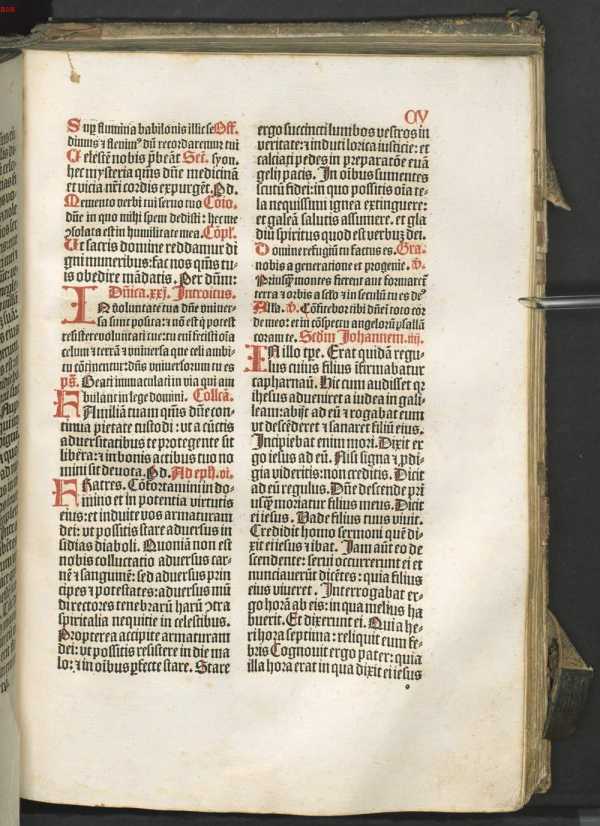 CV
Suꝑ flumina babilonis illic se Off.
dimus ⁊ fleuim⁹ dū recordaremur tui
Celestē nobis p̄beāt Secr̄. syon.
hec mysteria q̄ms dn̄e medicinā
et vicia nr̄i cordis expurgēt. Pd.
Memento verbi tui seruo tuo Cōio.
dn̄e in quo mihi spem dedisti: hec me
ꝯsolata est in humilitate mea. Cōpl.
Ut sacris domine reddamur di
gni muneribus: fac nos q̄ms tu-
is obedire mādatis. Per dn̄m:
Dn̄ica. xxj. Introitus.
IN voluntate tua dn̄e vniuer-
sa sunt posita: ⁊ nō est q̄ potest
resistere volūtati tue: tu em̄ fecisti oīa
celum ⁊ terrā ⁊ vniuersa que celi ambi-
tu cōtinentur: dn̄s vniuersorum tu es
ps̄. Beati immaculati in via qui am
bulant in lege domini. Collcā.
FAmiliā tuam q̄ms dn̄e con-
tinua pietate custodi: vt a cūctis
aduersitatibus te protegente sit
libera: ⁊ in bonis actibus tuo no
mini sit deuota. Pd. Ad eph. vi.
FRatres. Cōfortamini in do-
mino et in potentia virtutis
eius: et induite vos armaturam
dei: vt possitis stare aduersus in
sidias diaboli. Quoniā non est
nobis colluctatio aduersus car-
nē ⁊ sanguinē: sed aduersus prin
cipes ⁊ potestates: aduersus mūdi
rectores tenebrarū harū ꝯtra
spiritalia nequitie in celestibus.
Propterea accipite armaturam
dei: vt possitis resistere in die ma
lo: ⁊ in oībus ꝑfecte stare. State
ergo succincti lumbos vestros in
veritate: ⁊ induti lorica iusticie: et
calciati pedes in preparatōe euā
gelij pacis. In oībus sumentes
scutū fidei: in quo possitis oīa te-
la nequissimi ignea extinguere:
et galeā salutis assumere. et gla
diū spiritus quod est verbuꝫ dei.
Domine refugiū tu factus es. Gra.
nobis a generatione et progenie. v̄.
Priusꝙ montes fierent aut formaret̄
terra ⁊ orbis a sclo ⁊ in seculū tu es de⁹
Alla. v̄. Cōfitebor tibi dn̄e ī toto cor
de meo: et in cōspectu angelorū psallā
coram te. Scdm̄ Johannem. iiij.
IN illo tꝑe. Erat quidā regu-
lus cuius filius īfirmabatur
capharnaū. Hic cum audisset qꝛ
ihesus adueniret a iudea in gali
leam: abijt ad eū ⁊ rogabat eum
vt descēderet ⁊ sanaret filiū eius.
Incipiebat enim mori. Dixit er
go iesus ad eū. Nisi signa ⁊ ꝓdi-
gia videritis: non creditis. Dicit
ad eū regulus. Dn̄e descende pri
usꝙ moriatur filius meus. Dicit
ei iesus. Vade filius tuus viuit.
Credidit homo sermoni quē di-
xit ei iesus ⁊ ibat. Iam aūt eo de
scendente: serui occurrerunt ei et
nunciauerūt dicētes: quia filius
eius viueret. Interrogabat er-
go horā ab eis: in qua melius ha
buerit. Et dixerunt ei. Quia he-
ri hora septima: reliquit eum fe-
bris Cognouit ergo pater: quia
illa hora erat in qua dixit ei iesus